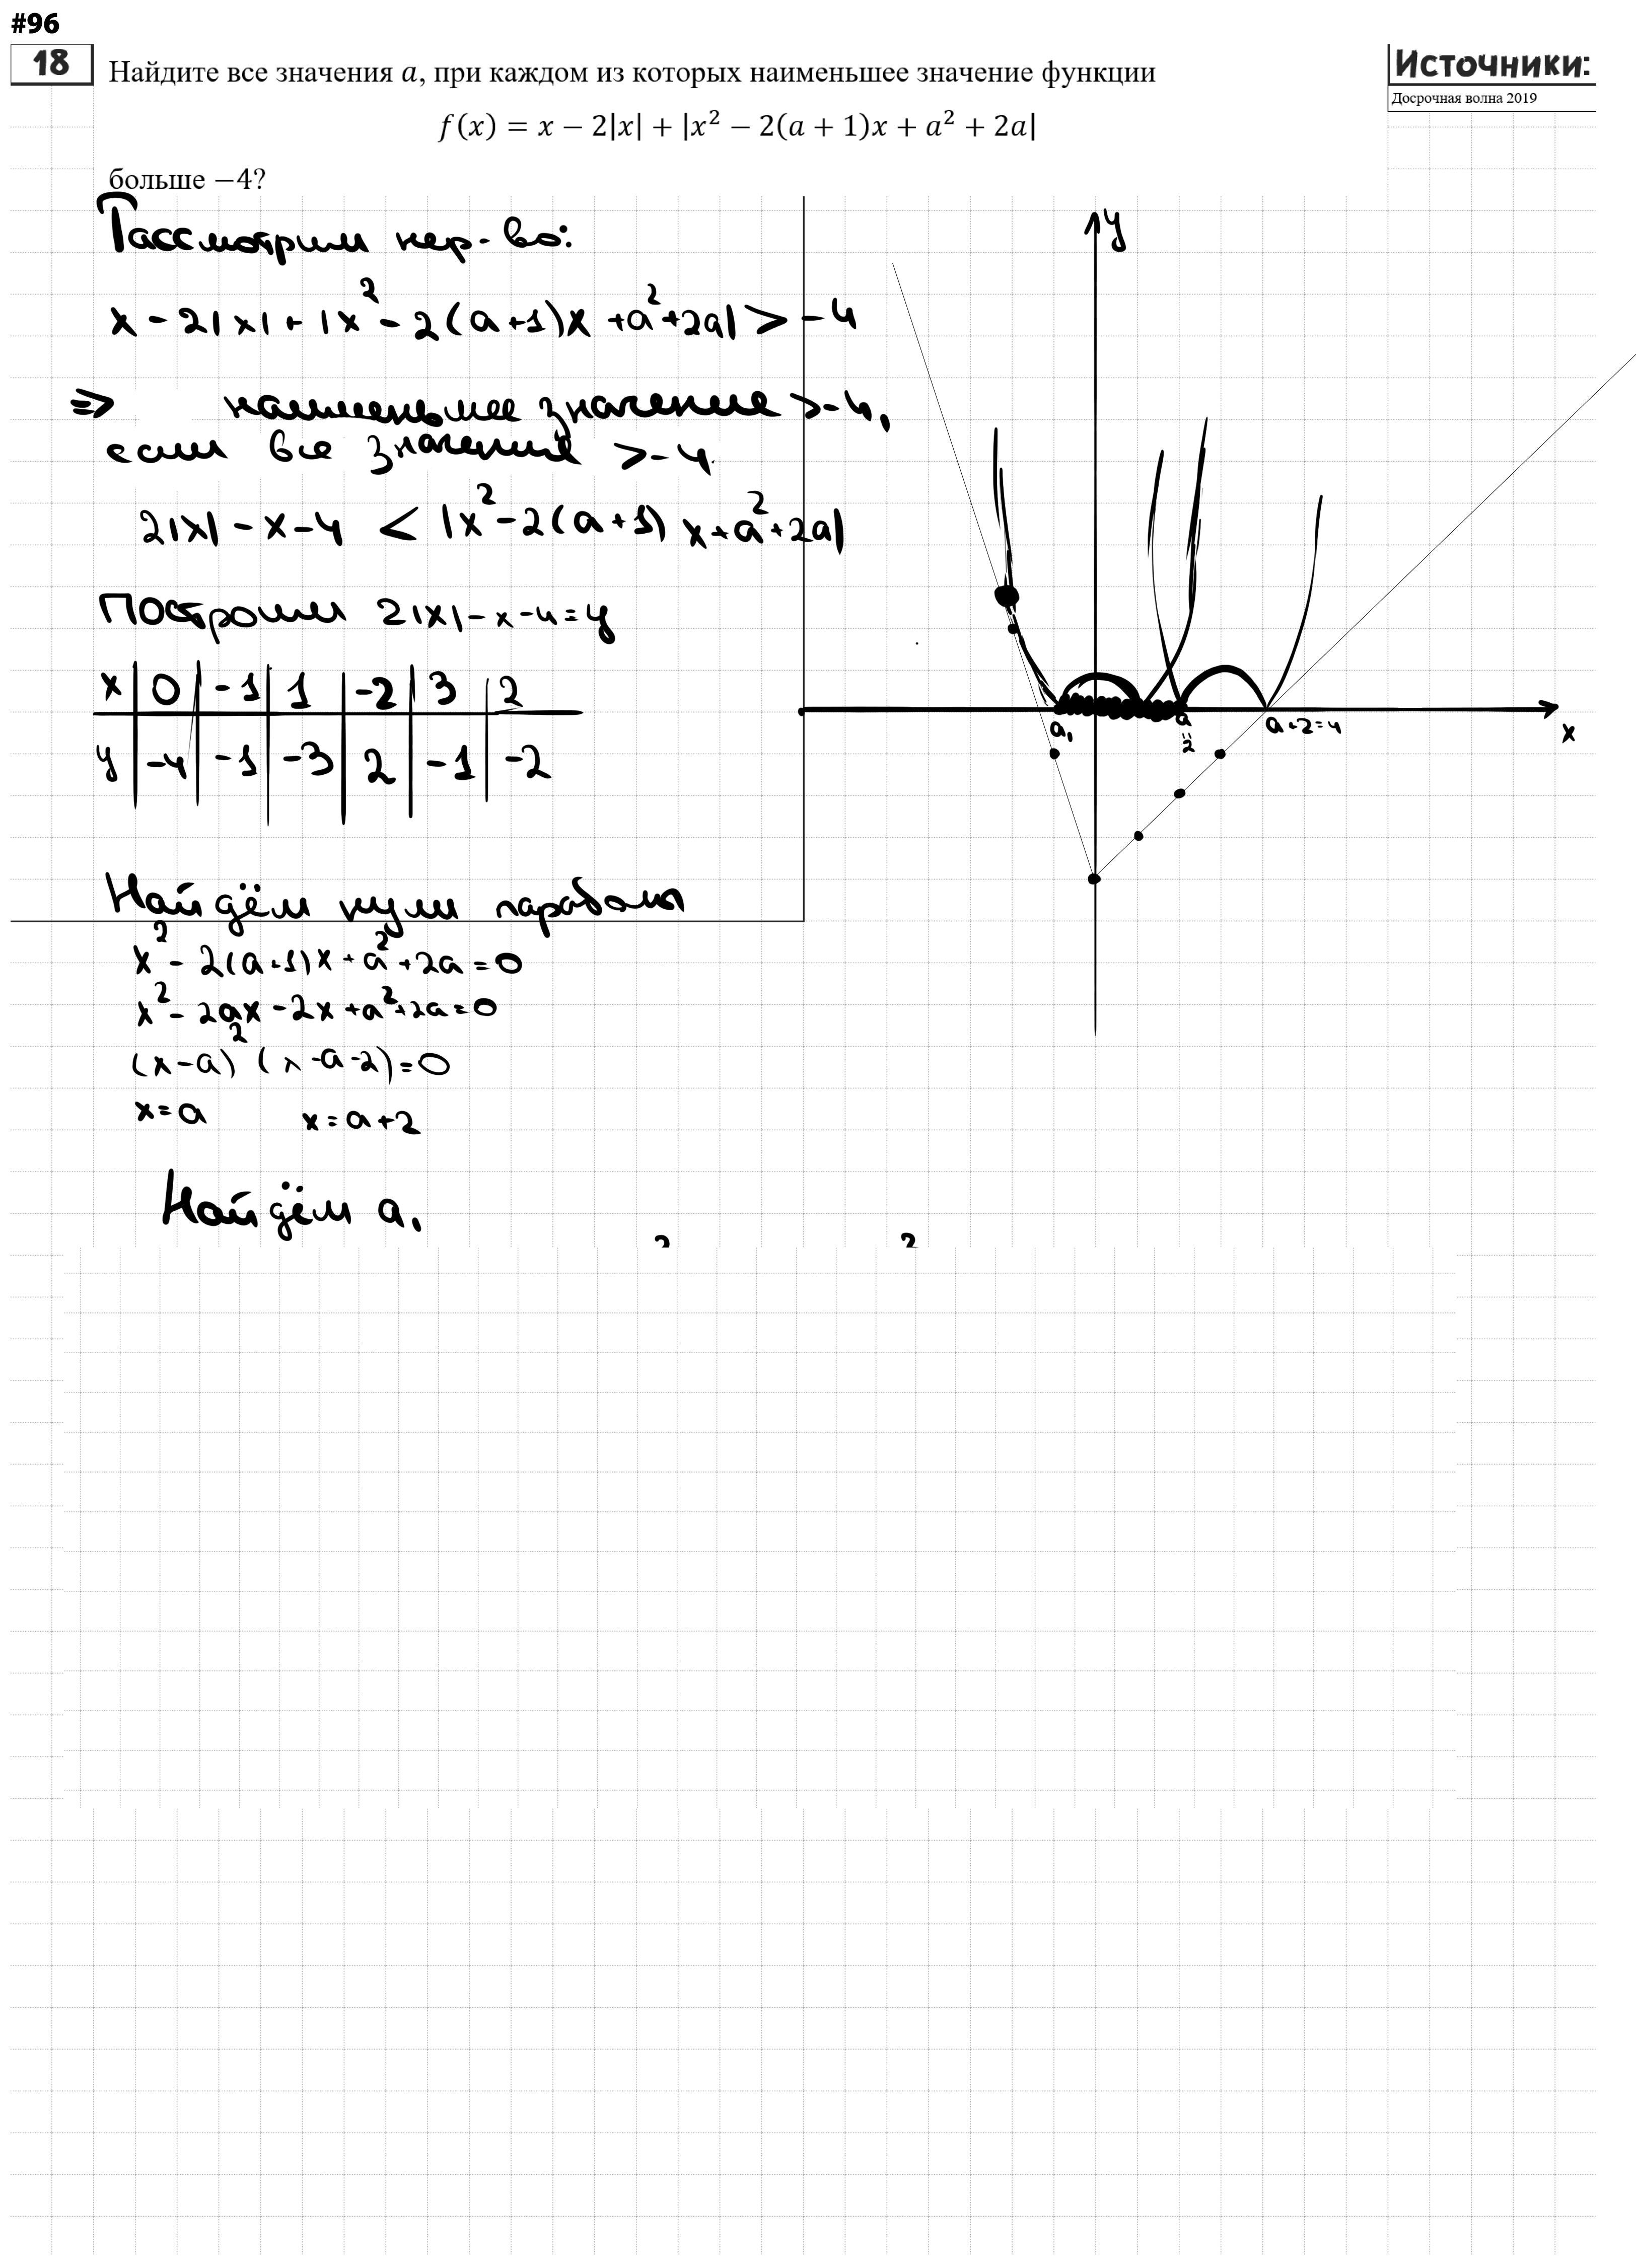 #96
18
Найдите все значения a, при каждом из которых наименьшее значение функции
Источники:
Досрочная волна 2019
f(x) = x − 2|x| + |x² − 2(a + 1)x + a² + 2a|
больше −4?
Рассмотрим нер-во:
x - 2|x| + |x² - 2(a+1)x + a² + 2a| > -4
=> наименьшее значение > -4,
если все значения > -4
2|x| - x - 4 < |x² - 2(a+1)x + a² + 2a|
Построим 2|x| - x - 4 = y
x | 0 | -1 | 1 | -2 | 3 | 2
y | -4 | -1 | -3 | 2 | -1 | -2
Найдём нули параболы
x² - 2(a+1)x + a² + 2a = 0
x² - 2ax - 2x + a² + 2a = 0
(x-a)² (x-a-2) = 0
x = a x = a+2
Найдём a₁
y
a₁
a
=
2
a+2=4
x